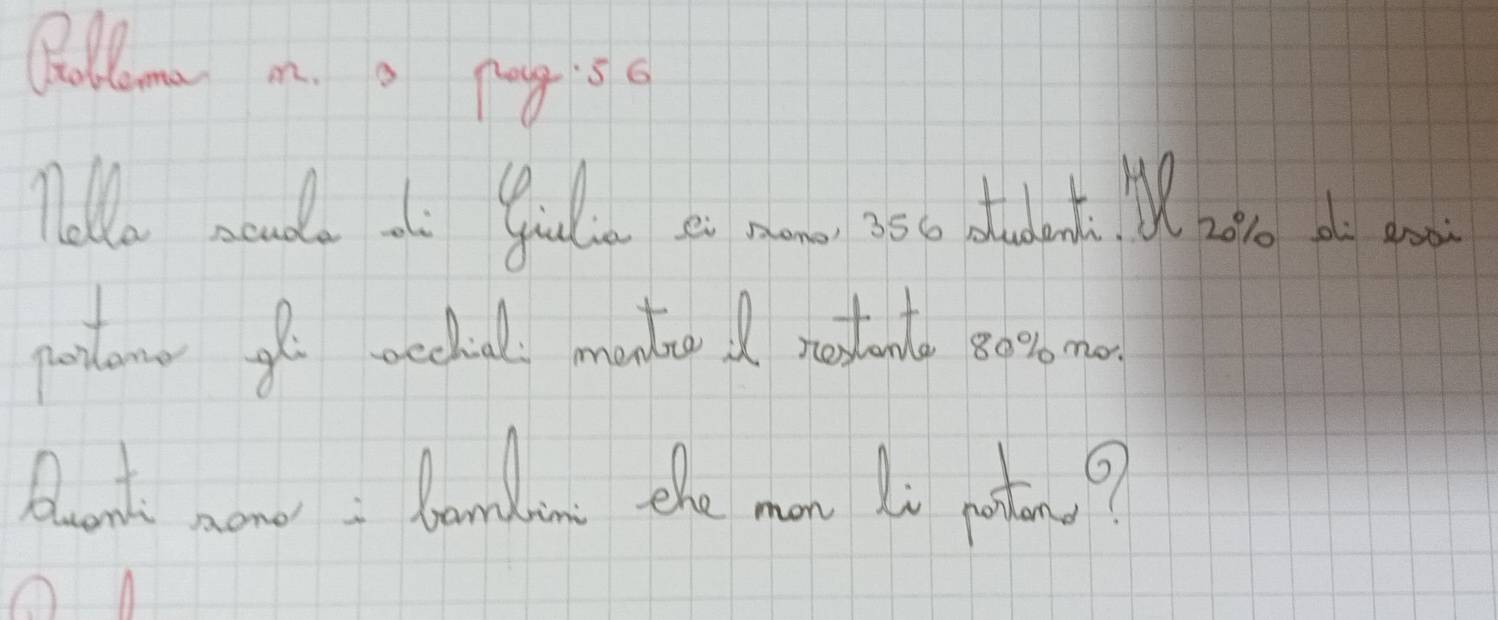 Problema n. 3 pag. 56
Nella scuola di Giulia ci sono 356 studenti. Il 20% di essi
portano gli occhiali mentre il restante 80% no.
Quanti sono i bambini che non li portano?